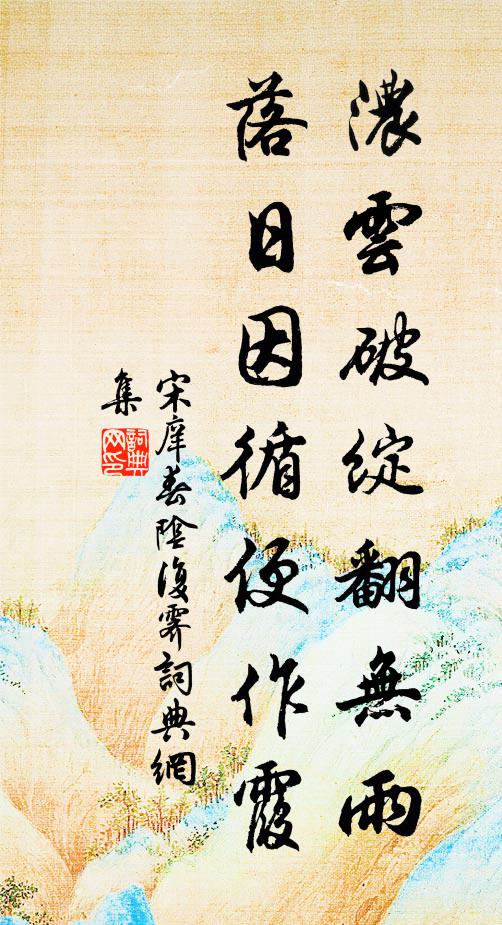 濃雲破綻翻無雨
落日因循便作霞
宋庠春陰復霽詞典網
集
詞典網印